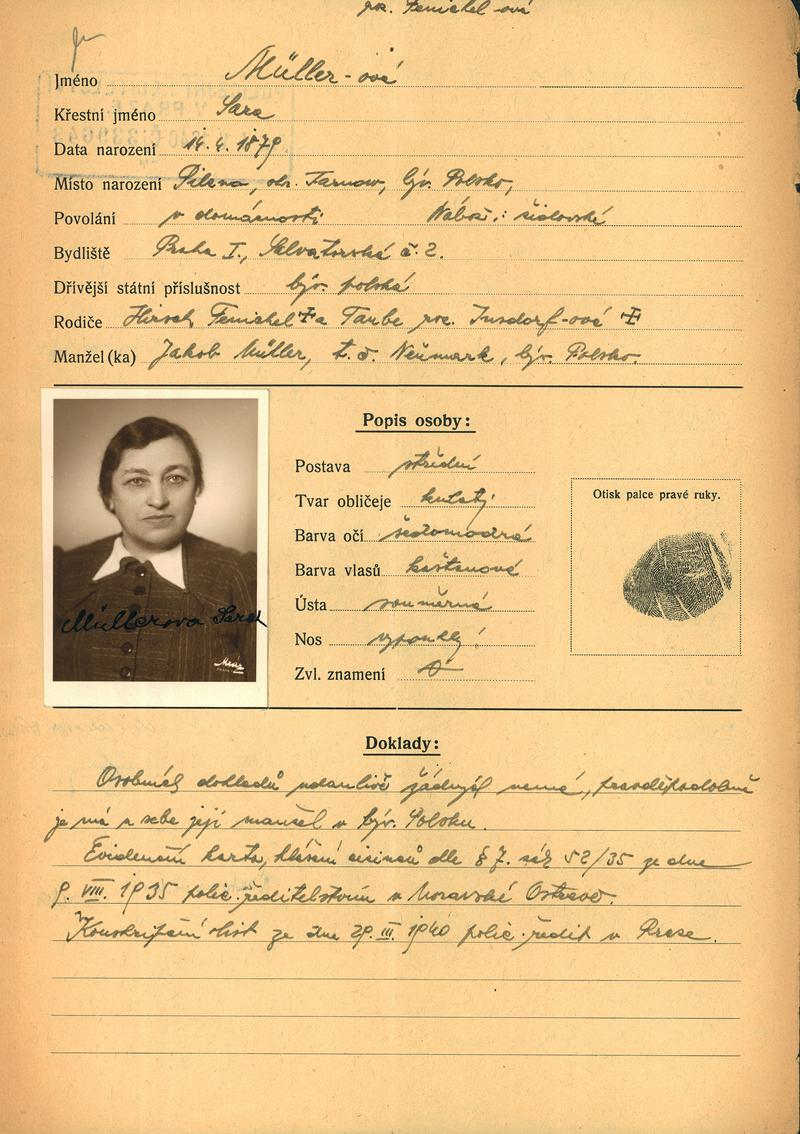 roz. Fenichel-ová
Jméno Müller-ová
Křestní jméno Sara
Data narození 14.4.1879
Místo narození Pilzna, okr. Tarnow, býv. Polsko,
Povolání v domácnosti Nábož.: židovské
Bydliště Praha I., Salvatorská č. 2.
Dřívější státní příslušnost býv. polská
Rodiče Hirsch Fenichel a Taube roz. Insdorf-ové
Manžel (ka) Jakob Müller, t. č. Neumark, býv. Polsko.
Popis osoby:
Postava střední
Tvar obličeje kulatý
Barva očí šedomodrá
Barva vlasů kaštanová
Ústa souměrná
Nos vypouklý
Zvl. znamení
Otisk palce pravé ruky.
Müllerova Sara
Doklady:
Osobních dokladů udánlivě žádných nemá, pravděpodobně
je má u sebe její manžel v býv. Polsku.
Evidenční karta, hlášení cizinců dle § 7. sb. 52/35 ze dne
9. VIII. 1935 polic. ředitelstvím v Moravské Ostravě.
Konskripční list ze dne 29. III. 1940 polic. ředit. v Praze.